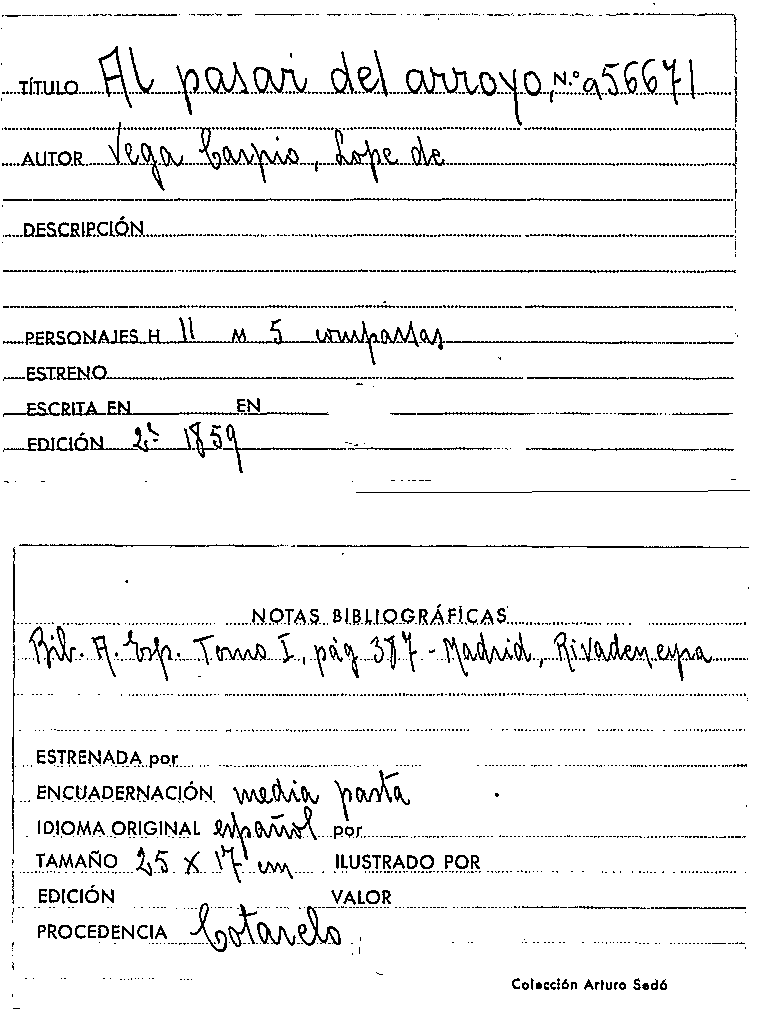 TÍTULO Al pasar del arroyo, N.º a56671
AUTOR Vega Carpio, Lope de
DESCRIPCIÓN
PERSONAJES H 11 M 5 comparsas
ESTRENO
ESCRITA EN EN
EDICIÓN 2ª 1859
NOTAS BIBLIOGRÁFICAS
Bib. A. Esp. Tomo I, pág 387 - Madrid, Rivadeneyra
ESTRENADA por
ENCUADERNACIÓN media pasta
IDIOMA ORIGINAL español por
TAMAÑO 25 X 17 cm ILUSTRADO POR
EDICIÓN VALOR
PROCEDENCIA Cotarelo
Colección Arturo Sedó